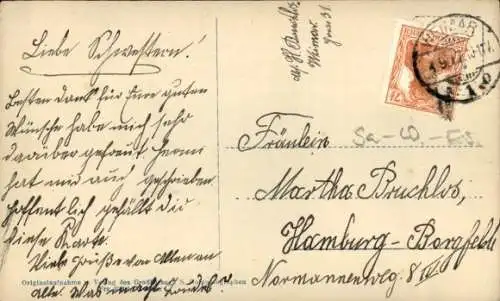 Liebe Schwestern!
Besten Dank für Eure guten
Wünsche habe mich sehr
darüber gefreut. Hermi
hat mir auch geschrieben.
Hoffentlich gefällt dir
diese Karte.
Viele Grüße von Allen an
Alle. Was macht
Abs. H. Bruchlos
Weimar.
WEIMAR
Fräulein
Martha Bruchlos,
Hamburg-Borgfelde
Normannenweg 8
Originalaufnahme u. Verlag des